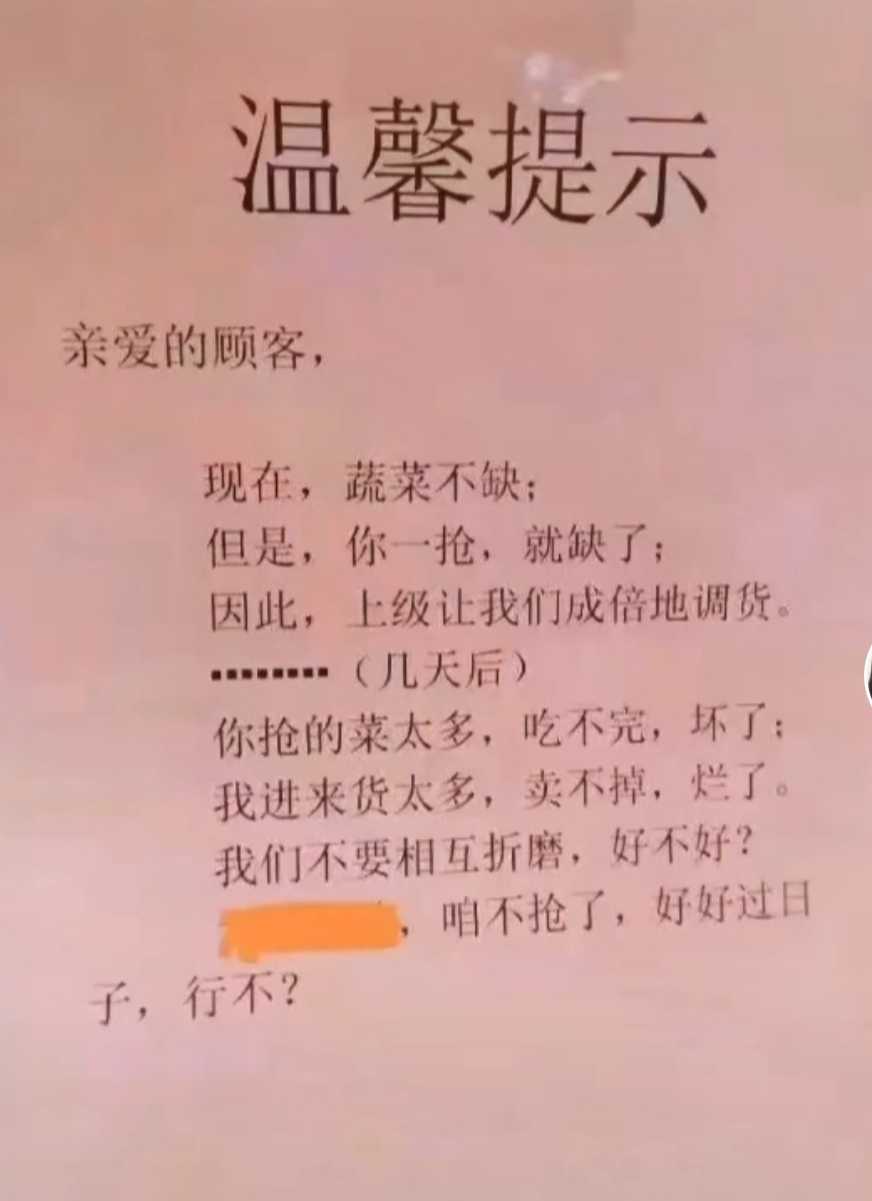 温馨提示
亲爱的顾客，
现在，蔬菜不缺；
但是，你一抢，就缺了；
因此，上级让我们成倍地调货。
········（几天后）
你抢的菜太多，吃不完，坏了；
我进来货太多，卖不掉，烂了。
我们不要相互折磨，好不好？
，咱不抢了，好好过日
子，行不？